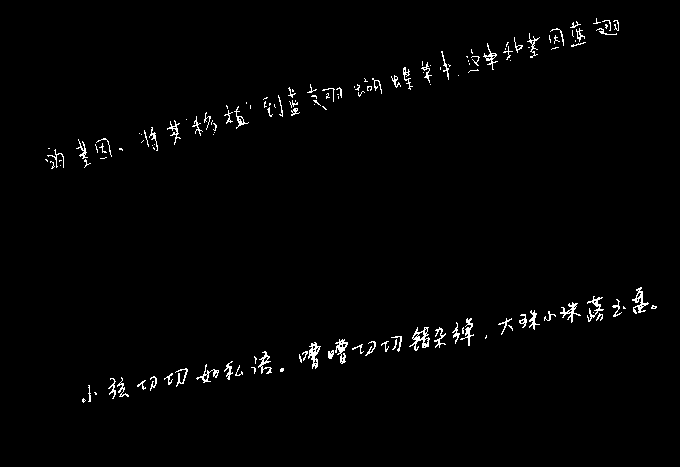 的基因、将其"移植"到蓝翅蝴蝶草中.这串种基因蓝翅
小弦切切如私语。嘈嘈切切错杂弹,大珠小珠落玉盘。